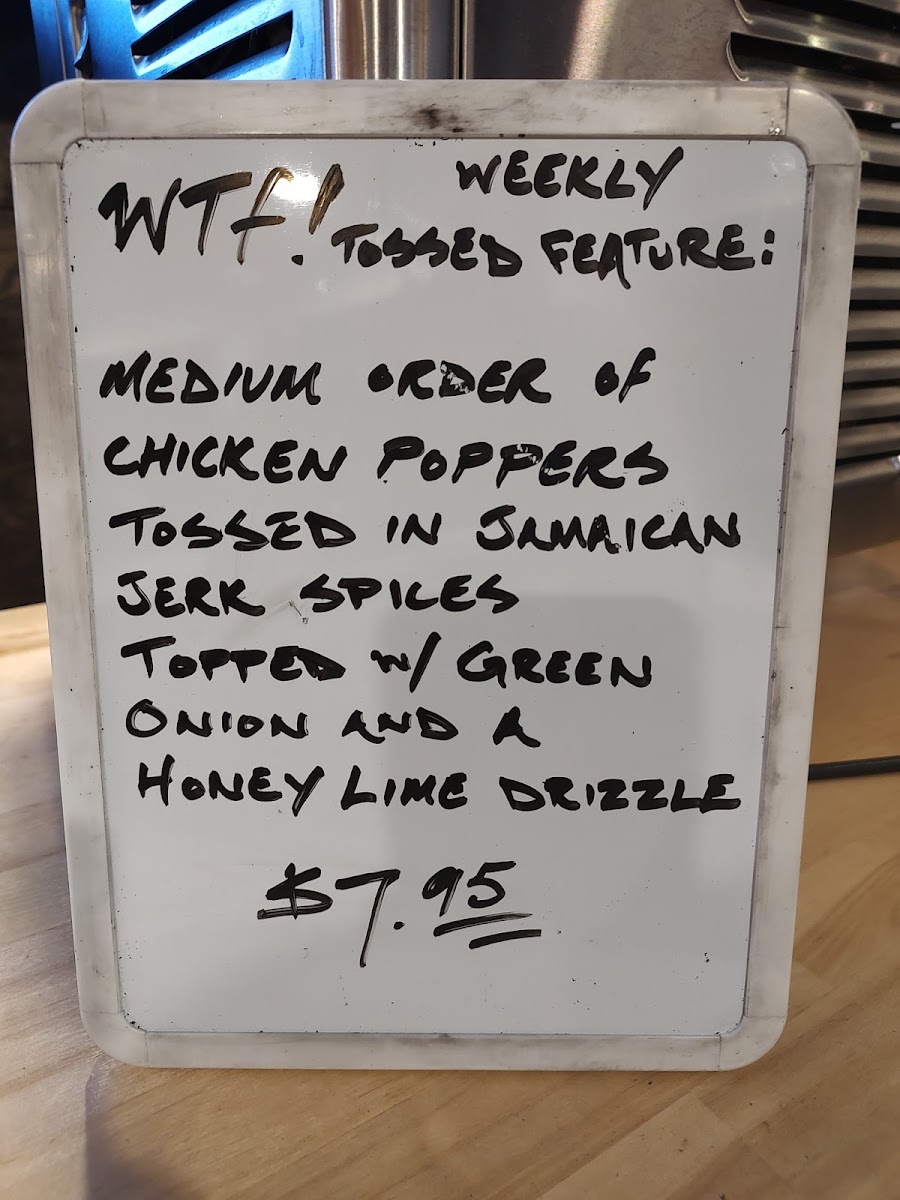 WTf! WEEKLY
TOSSED FEATURE:
MEDIUM ORDER OF
CHICKEN POPPERS
TOSSED IN JAMAICAN
JERK SPICES
TOPPED W/ GREEN
ONION AND A
HONEY LIME DRIZZLE
$7.95